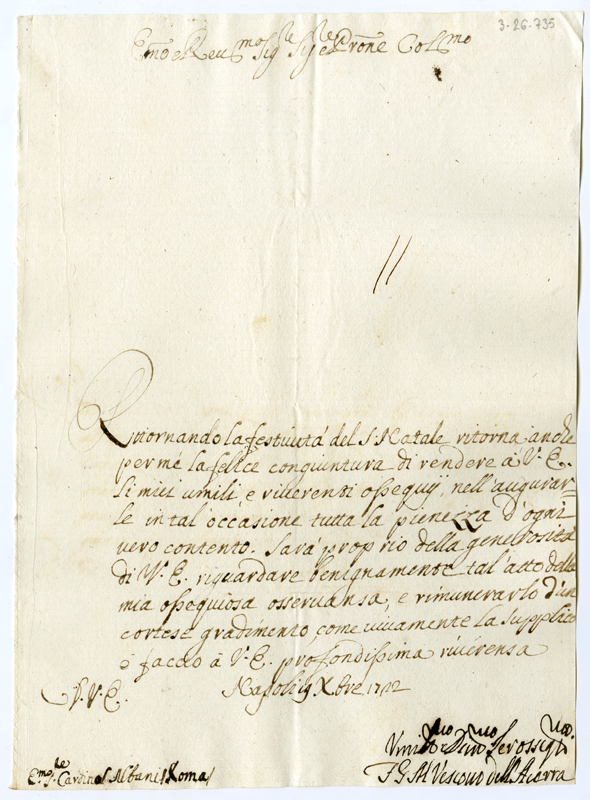 3-26-735
Emo e Reumo Sigle Sigle e Prone Collmo
Ritornando la festiuità del S. Natale ritorna anche
per mé la felice congiuntura di rendere à V. E.
li miei umili, e riuerenti ossequij, nell'augurar=
le in tal occasione tutta la pienezza d'ogni
vero contento. Sarà proprio della generosità
di V. E. riguardare benignamente tal'atto della
mia ossequiosa osseruansa, e rimunerarlo d'un
cortese gradimento, come viuamente la supplico
e faccio à V. E. profondissima riuerensa
Napoli Xbre 1712
V. E.
Vmilmo Seror
F G M Vescouo dell'Acerra
Emo Sle Cardinal Albani Roma